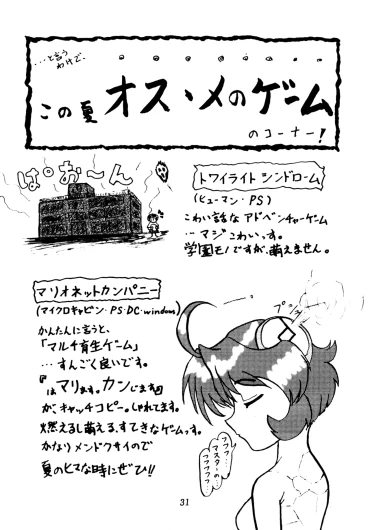 …と言う
わけで。
この夏 オスヽメのゲーム
のコーナー!
ぱぉーん
トワイライトシンドローム
(ヒューマン・PS)
こわい話なアドベンチャーゲーム
…マジこわいっす。
学園モノですが、萌えません。
マリオネットカンパニー
(マイクロキャビン・PS・DC・windows)
かんたんに言うと、
「マルチ育生ゲーム」
…すんごく良いです。
がキャッチコピー。しゃれてます。
燃えるし萌える、すてきなゲームっす。
かなりメンドクサイので
夏のヒマな時にぜひ!!
フフフ…
マスターの…
フフフフ…
31